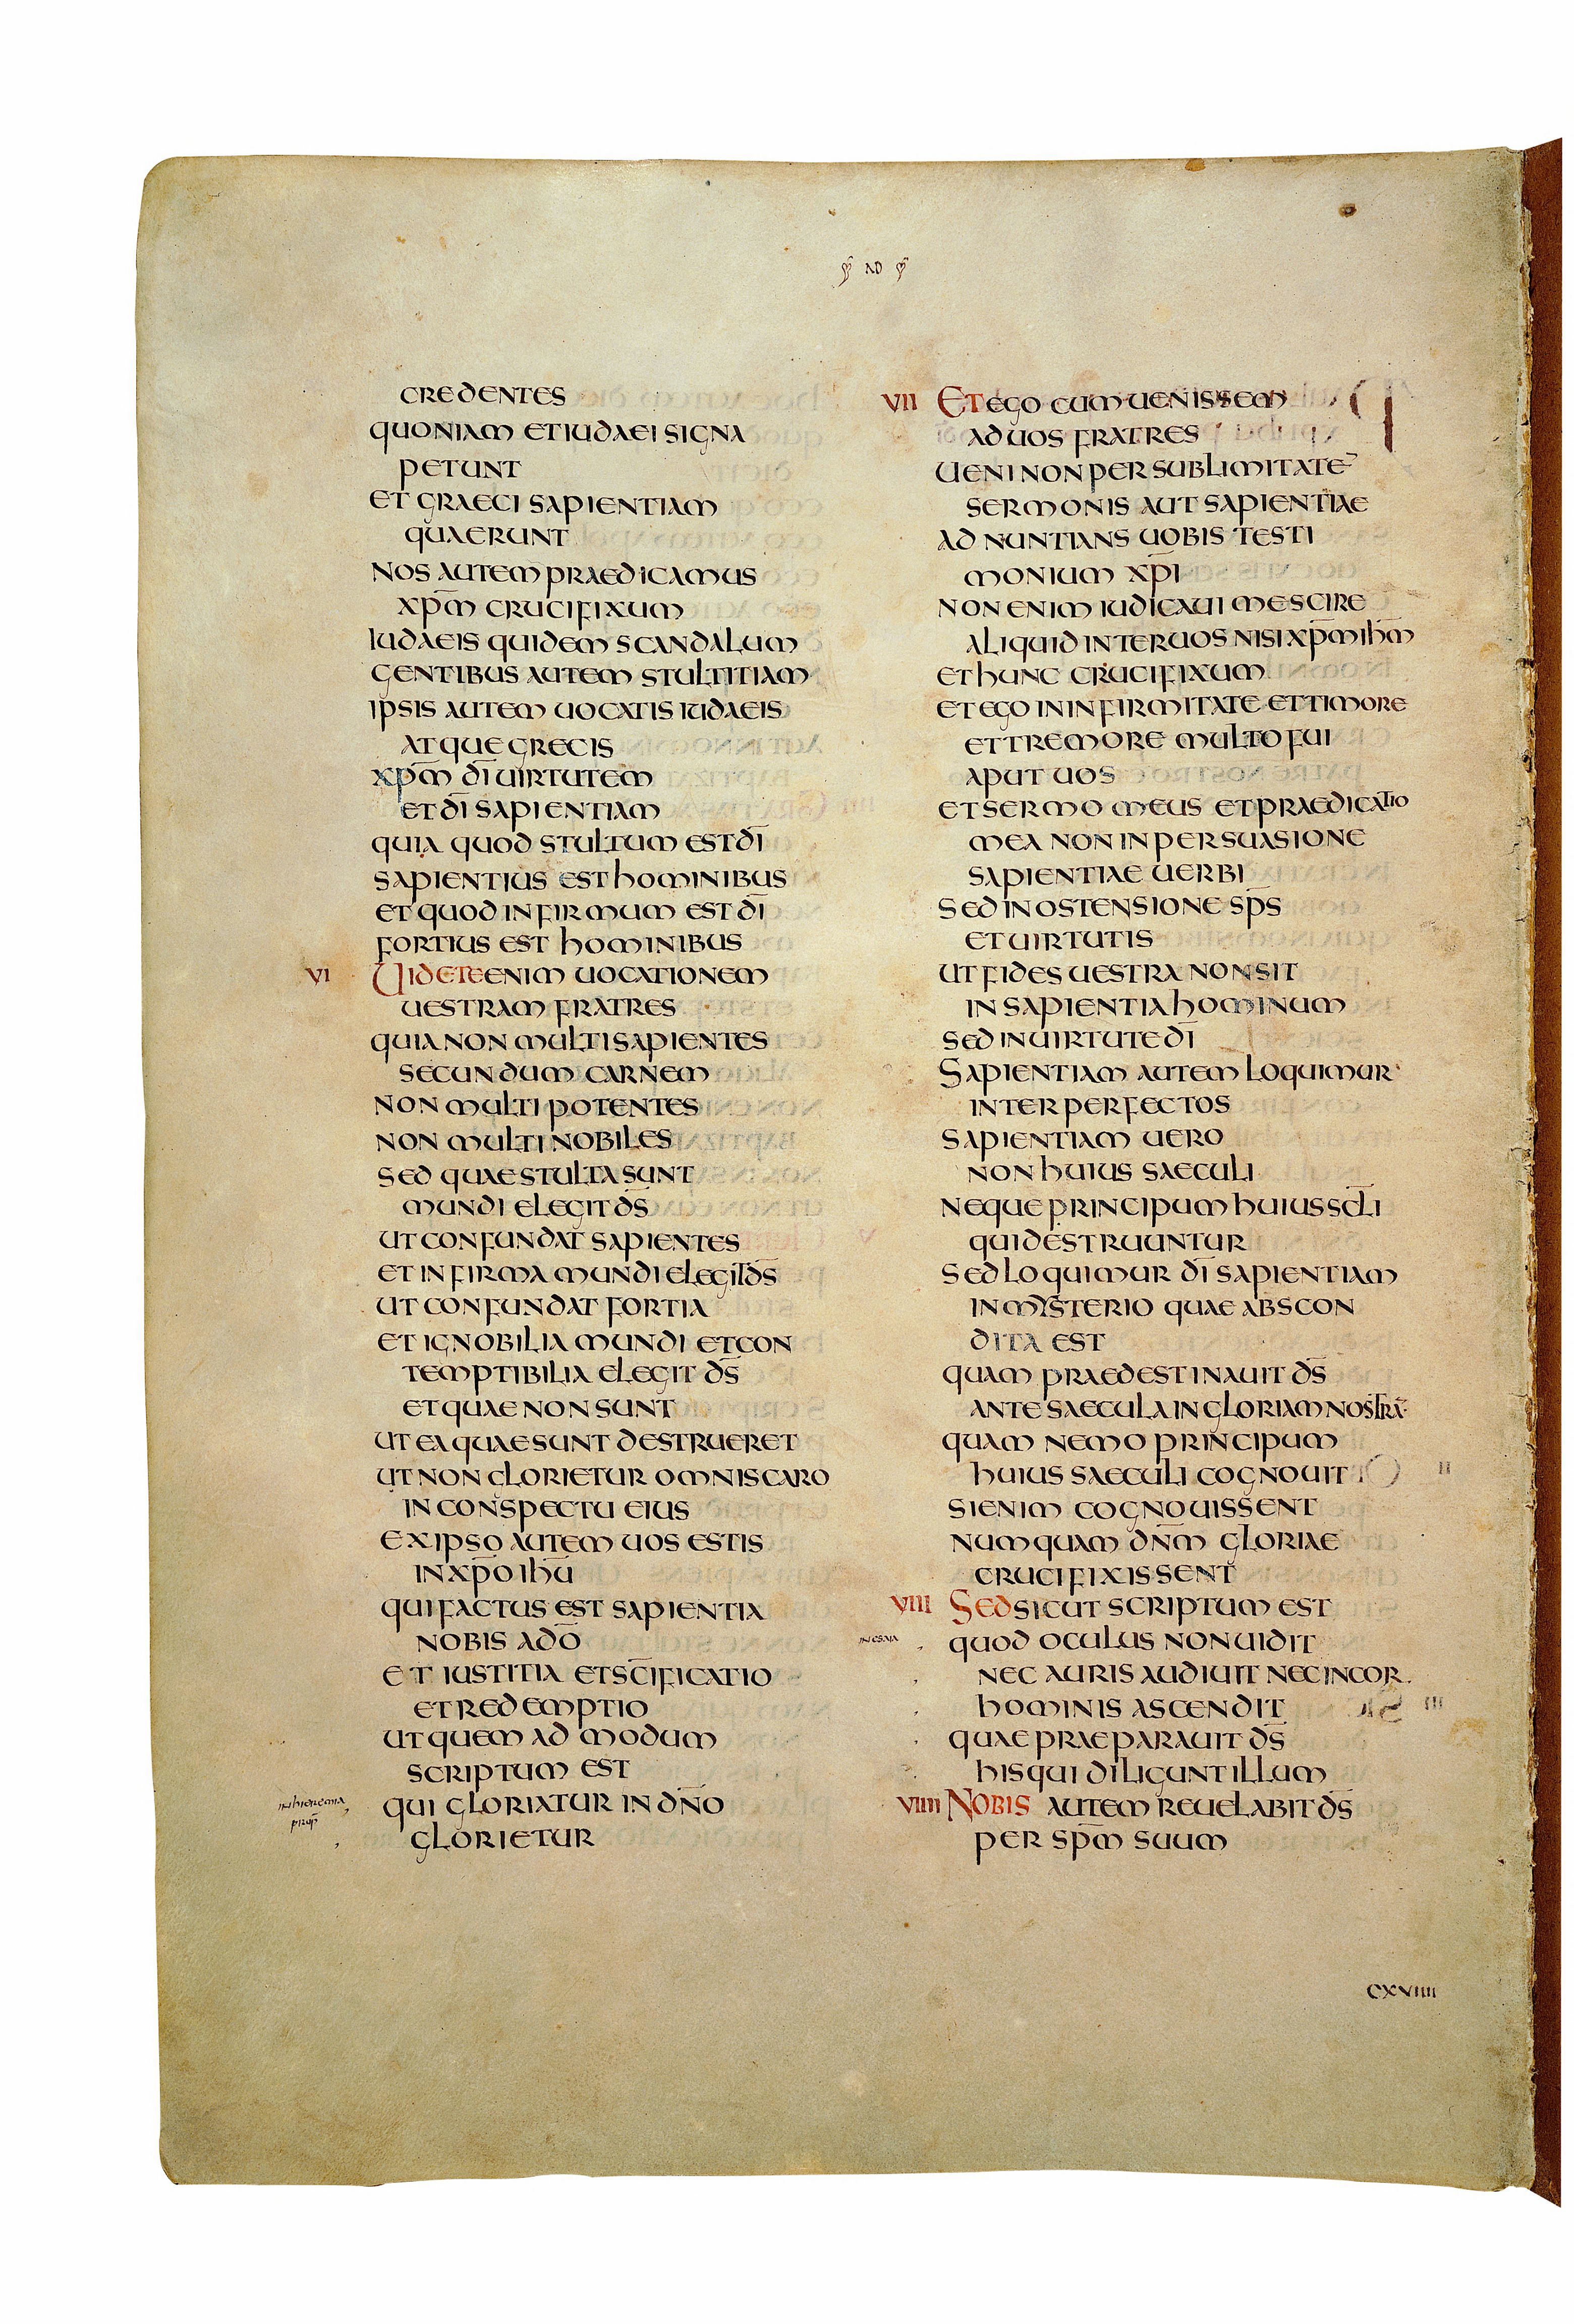 AD
CREDENTES
QUONIAM ETIUDAEI SIGNA
PETUNT
ET GRAECI SAPIENTIAM
QUAERUNT
NOS AUTEM PRAEDICAMUS
XP̅M CRUCIFIXUM
IUDAEIS QUIDEM SCANDALUM
GENTIBUS AUTEM STULTITIAM
IPSIS AUTEM UOCATIS IUDAEIS
ATQUE GRECIS
XP̅M D̅I UIRTUTEM
ET D̅I SAPIENTIAM
QUIA QUOD STULTUM EST D̅I
SAPIENTIUS EST HOMINIBUS
ET QUOD INFIRMUM EST D̅I
FORTIUS EST HOMINIBUS
VI UIDETE ENIM UOCATIONEM
UESTRAM FRATRES
QUIA NON MULTI SAPIENTES
SECUNDUM CARNEM
NON MULTI POTENTES
NON MULTI NOBILES
SED QUAE STULTA SUNT
MUNDI ELEGIT D̅S
UT CONFUNDAT SAPIENTES
ET INFIRMA MUNDI ELEGIT D̅S
UT CONFUNDAT FORTIA
ET IGNOBILIA MUNDI ET CON
TEMPTIBILIA ELEGIT D̅S
ET QUAE NON SUNT
UT EA QUAE SUNT DESTRUERET
UT NON GLORIETUR OMNIS CARO
IN CONSPECTU EIUS
EX IPSO AUTEM UOS ESTIS
IN XP̅O IH̅U
QUI FACTUS EST SAPIENTIA
NOBIS A D̅O
ET IUSTITIA ET SC̅IFICATIO
ET REDEMPTIO
UT QUEM AD MODUM
SCRIPTUM EST
in hieremia QUI GLORIATUR IN D̅N̅O
prop̅ GLORIETUR
VII ET EGO CUM UENISSEM
AD UOS FRATRES
UENI NON PER SUBLIMITATE̅
SERMONIS AUT SAPIENTIAE
AD NUNTIANS UOBIS TESTI
MONIUM XP̅I
NON ENIM IUDICAUI ME SCIRE
ALIQUID INTER UOS NISI XP̅M IH̅M
ET HUNC CRUCIFIXUM
ET EGO IN INFIRMITATE ET TIMORE
ET TREMORE MULTO FUI
APUT UOS
ET SERMO MEUS ET PRAEDICATIO
MEA NON IN PERSUASIONE
SAPIENTIAE UERBI
SED IN OSTENSIONE SP̅S
ET UIRTUTIS
UT FIDES UESTRA NON SIT
IN SAPIENTIA HOMINUM
SED IN UIRTUTE D̅I
SAPIENTIAM AUTEM LOQUIMUR
INTER PERFECTOS
SAPIENTIAM UERO
NON HUIUS SAECULI
NEQUE PRINCIPUM HUIUS SC̅L̅I
QUI DESTRUUNTUR
SED LOQUIMUR D̅I SAPIENTIAM
IN MYSTERIO QUAE ABSCON
DITA EST
QUAM PRAEDESTINAUIT D̅S
ANTE SAECULA IN GLORIAM NOSTRA̅
QUAM NEMO PRINCIPUM
HUIUS SAECULI COGNOUIT
SI ENIM COGNOUISSENT
NUMQUAM D̅N̅M GLORIAE
CRUCIFIXISSENT
VIII SED SICUT SCRIPTUM EST
in esaia QUOD OCULUS NON UIDIT
NEC AURIS AUDIUIT NEC IN COR
HOMINIS ASCENDIT
QUAE PRAEPARAUIT D̅S
HIS QUI DILIGUNT ILLUM
VIIII NOBIS AUTEM REUELABIT D̅S
PER SP̅M SUUM
CXVIIII